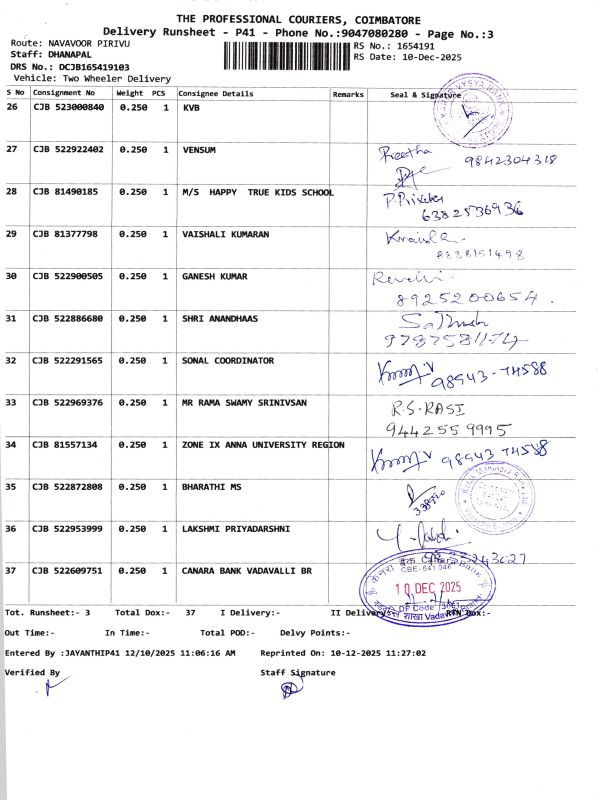 THE PROFESSIONAL COURIERS, COIMBATORE
Delivery Runsheet - P41 - Phone No.:9047080280 - Page No.:3
Route: NAVAVOOR PIRIVU
RS No.: 1654191
Staff: DHANAPAL
RS Date: 10-Dec-2025
DRS No.: DCJB165419103
Vehicle: Two Wheeler Delivery
S No Consignment No Weight PCS Consignee Details Remarks Seal & Signature
26 CJB 523000840 0.250 1 KVB
27 CJB 522922402 0.250 1 VENSUM Preetha 9842304318
28 CJB 81490185 0.250 1 M/S HAPPY TRUE KIDS SCHOOL
6382536936
29 CJB 81377798 0.250 1 VAISHALI KUMARAN
30 CJB 522900505 0.250 1 GANESH KUMAR Revathi.
8925200654.
31 CJB 522886680 0.250 1 SHRI ANANDHAAS
32 CJB 522291565 0.250 1 SONAL COORDINATOR 98943-74588
33 CJB 522969376 0.250 1 MR RAMA SWAMY SRINIVSAN R.S.RASI
9442559995
34 CJB 81557134 0.250 1 ZONE IX ANNA UNIVERSITY REGION 98943 74588
35 CJB 522872808 0.250 1 BHARATHI MS
36 CJB 522953999 0.250 1 LAKSHMI PRIYADARSHNI
37 CJB 522609751 0.250 1 CANARA BANK VADAVALLI BR
Canara Bank
CBE-641 046
10 DEC 2025
DP Code
Tot. Runsheet:- 3 Total Dox:- 37 I Delivery:- II Delivery:- RTN Dox:-
Out Time:- In Time:- Total POD:- Delvy Points:-
Entered By :JAYANTHIP41 12/10/2025 11:06:16 AM Reprinted On: 10-12-2025 11:27:02
Verified By Staff Signature